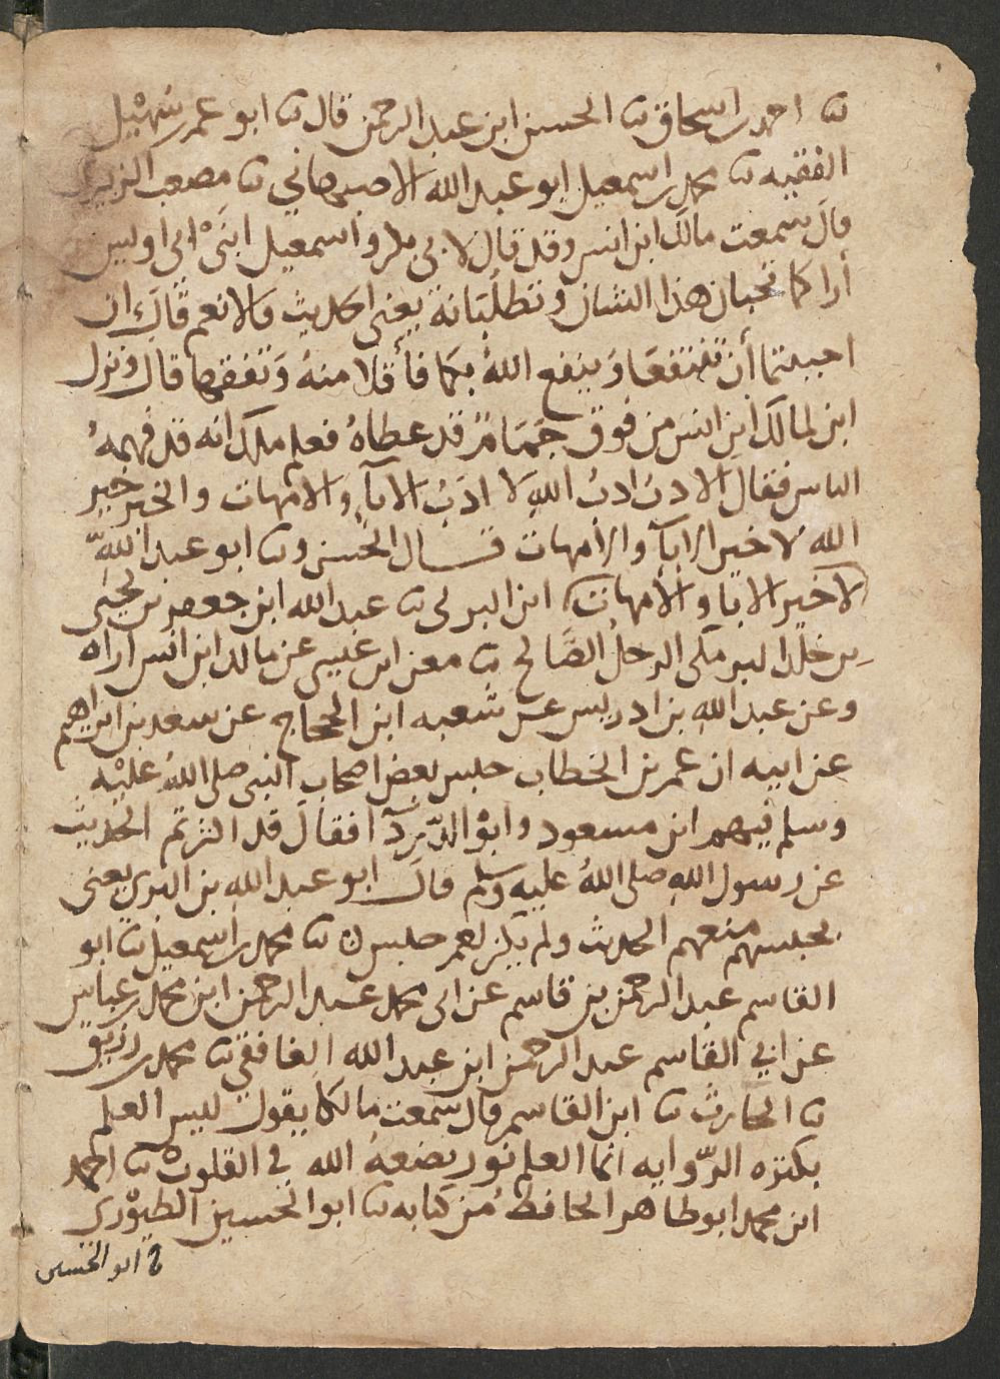 ثنا احمد بن اسحاق ثنا الحسن ابن عبد الرحمن قال ثنا ابو عمر سهيل
الفقيه ثنا محمد بن اسمعيل ابو عبد الله الاصبهاني ثنا مصعب الزبيري
قال سمعت مالك ابن انس وقد قال لابي بكر واسمعيل ابنَيْ ابي اويس
أراكما تحبان هذا الشان وتطلُبَانه يعني الحديث قالا نعم قال ان
احببتما أن تنتفعَا وَينفع اللهُ بكما فأقلا منهُ وَتفقها قال ونزل
ابن لمالك ابن انس من فوق حَمَامٌ قد عطاهُ فعلم ملك انه قد فهمهُ
الناس فقال الادبُ ادبُ اللهِ لا ادَبُ الاباءِ والامهات والخير خير
الله لا خير الاباء والأمهات قال الحسن وثنا ابو عبد اللهِ
لا خير الابا والأمهات ابن البري ثنا عبد الله ابن جعفر بن يحيى
بن خلد البرمكي الرجل الصَّالح ثنا معن ابن عيسى عن مالك ابن انس اراه
وعن عبد اللهِ بن ادريس عن شعبه ابن الحجاج عن سعد بن ابراهيم
عن ابيه ان عمر بن الخطاب حبس بعض اصحاب النبي صلى اللهُ عليْه
وسلم فيهم ابن مسعود وابوْ الدّردآ افقال قد اكثرتم الحديث
عن رسول اللهِ صلى اللهُ عليه وسلم قال ابو عبد اللهِ بن البري يعني
بحبسهم منعهم الحديث ولم يكن لعمر حبس ثنا محمد بن اسمعيل ثنا ابو
القاسم عبد الرحمن بن قاسم عن ابي محمد عبد الرحمن ابن محمد بن عباس
عن ابي القاسم عبد الرحمن ابن عبد الله الغافقي ثنا محمد بن رزيق
ثنا الحارث ثنا ابن القاسم قال سمعت مالكا يقول ليس العلم
بكثره الرّوايه انما العلم نور يضعهُ الله في القلوب ثنا احمد
ابن محمد ابو طاهر الحافظُ من كتابه ثنا ابو الحسين الطيوْري
ابو الحسين